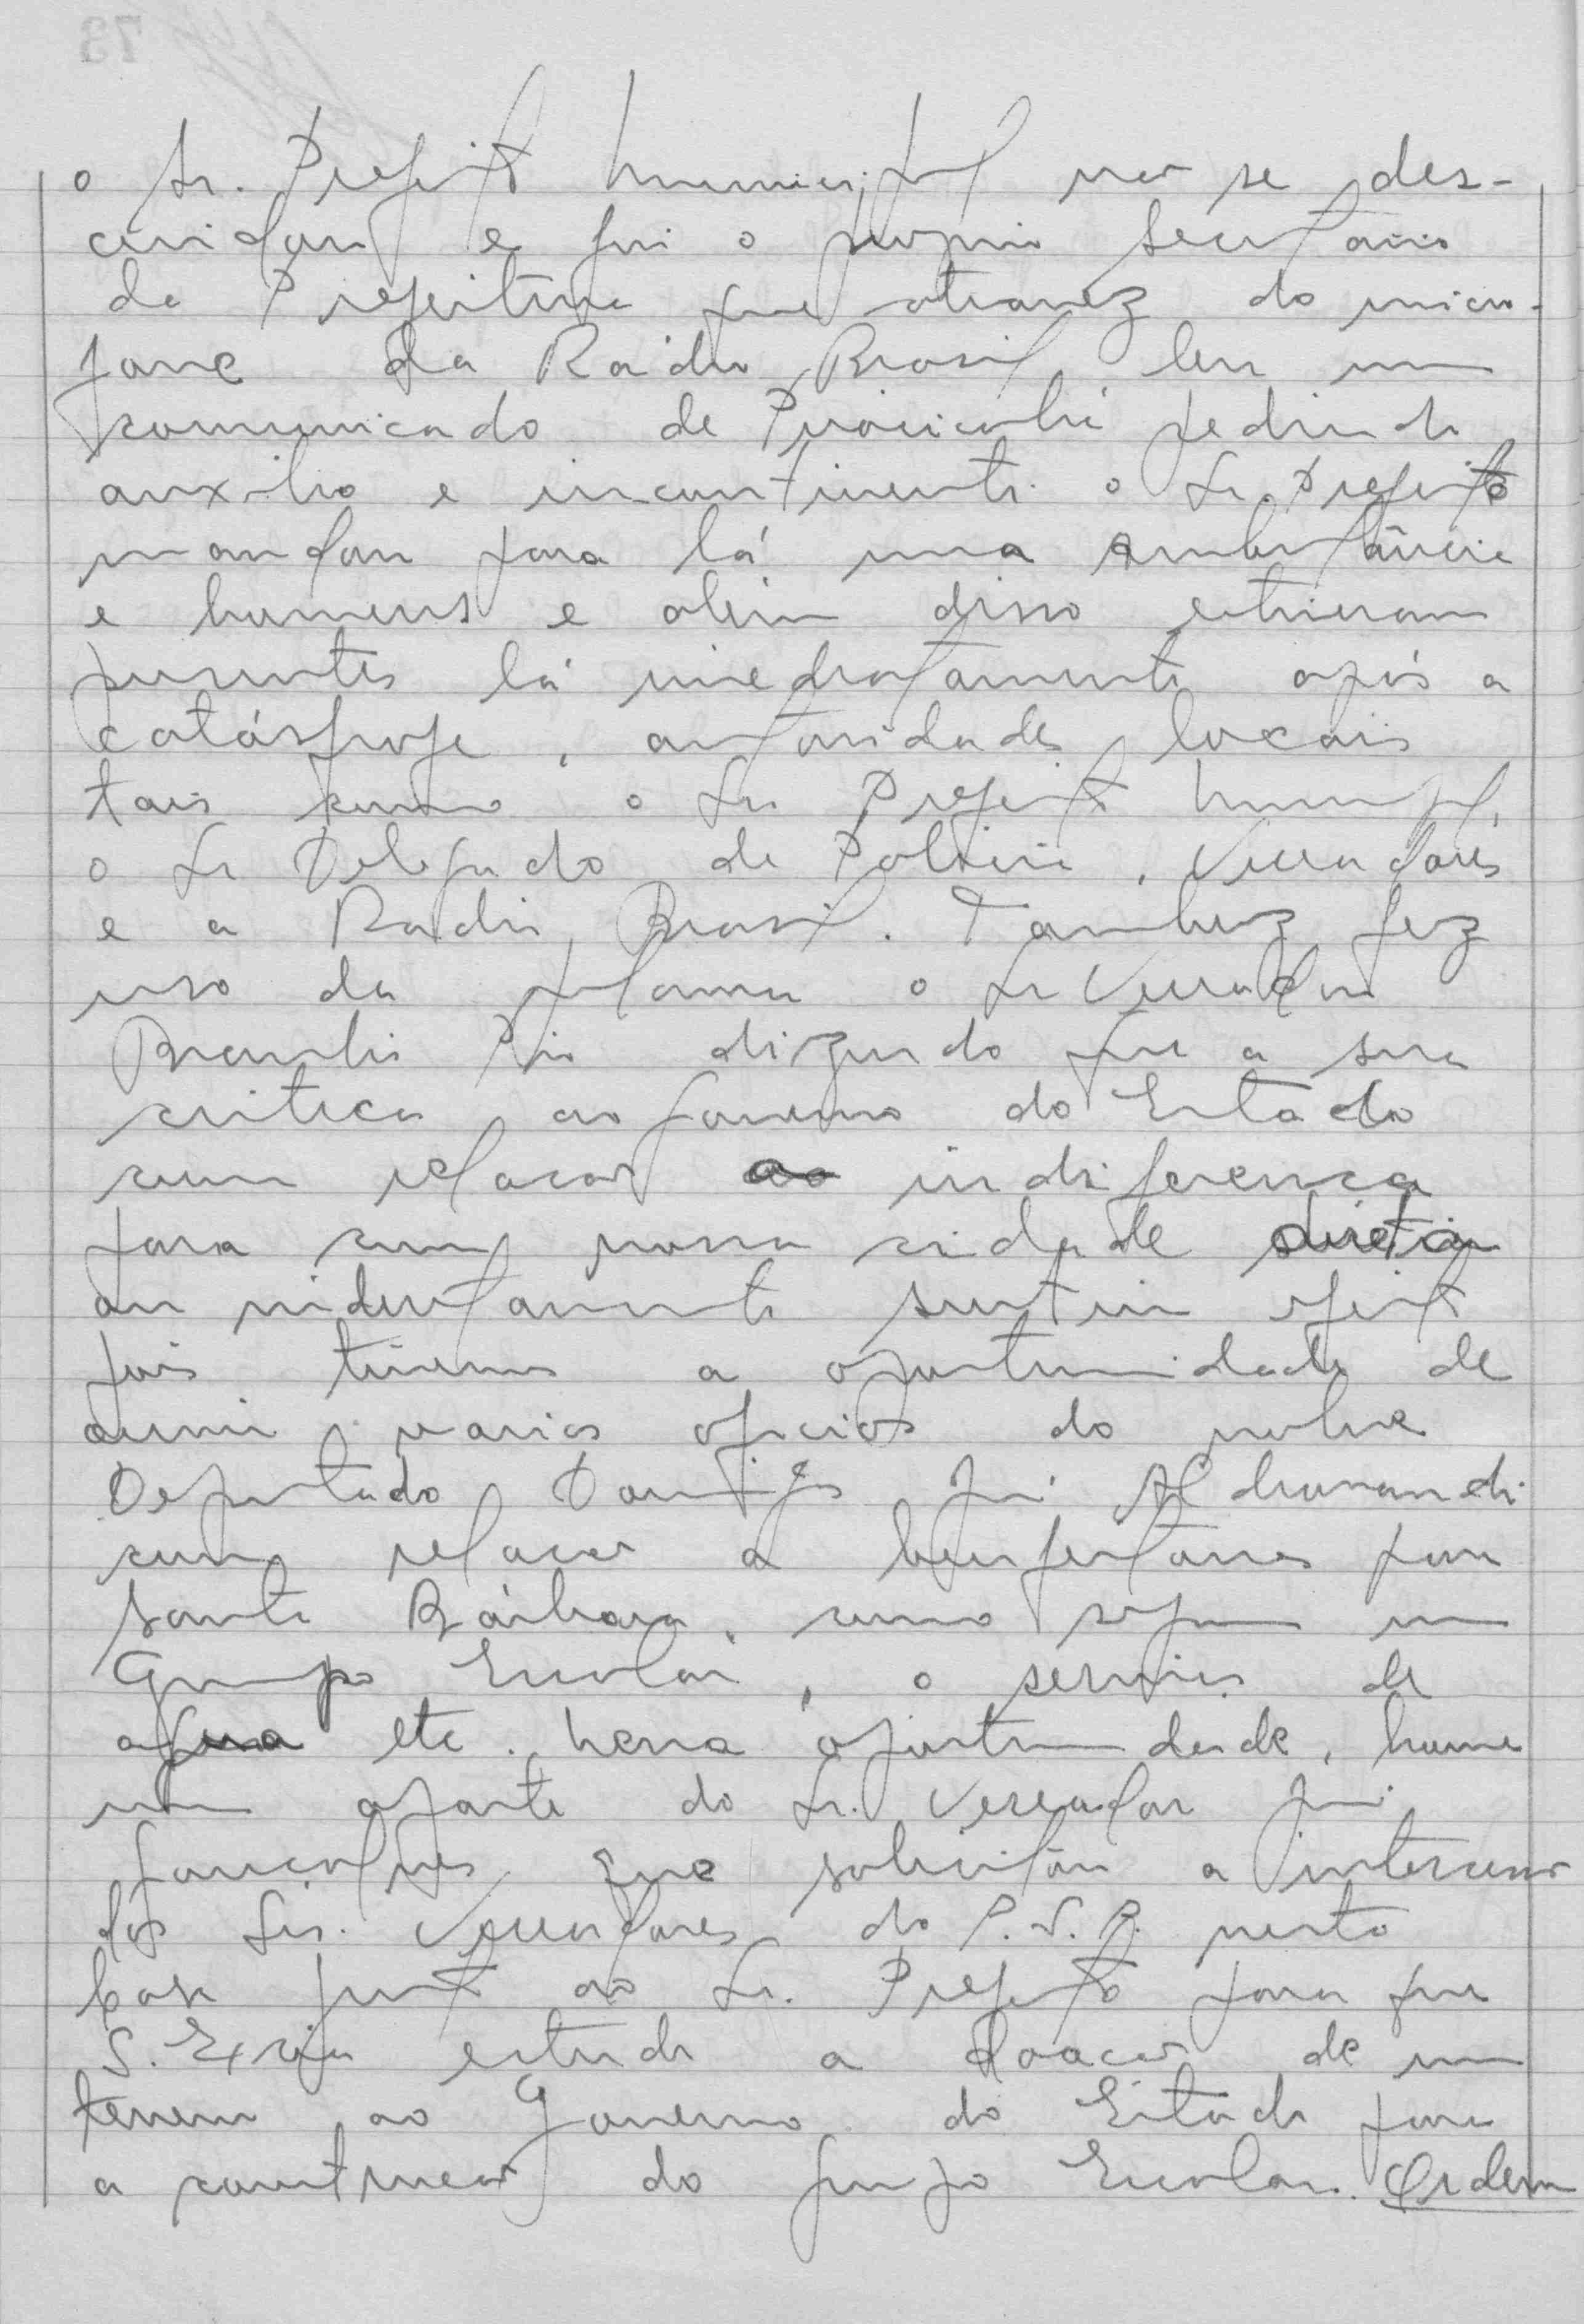 o Sr. Prefeito Municipal não se des-
cuidou e foi o proprio Secretario
da Prefeitura que atravez do micro-
fone da Radio Brasil leu um
comunicado de Piracicaba pedindo
auxilio e incontinente o Sr. Prefeito
mandou para lá uma Ambulância
e homens e além disso estiveram
presentes lá imediatamente após a
catástrofe, autoridades locais
tais como o Sr. Prefeito Municipal,
o Sr Delegado de Policia, Vereadores
e a Radio Brasil. Tambem fez
uso da palavra o Sr Vereador
dizendo que a sua
critica ao Governo do Estado
com relação ao indiferença
para com nossa cidade
ou sentiu efeito
pois tivemos a oportunidade de
ouvir varios oficios do nobre
Deputado Domingos José Aldrovandi
com relação a benfeitorias para
Santa Bárbara, como sejam um
Grupo Escolar, o serviço de
agua etc. Nessa oportunidade, houve
um aparte do Sr. Vereador José
Gonçalves que solicitou a intercessão
dos Srs. Vereadores do P.S.P. nesta
Casa junto ao Sr. Prefeito para que
S. Excia estude a doação de um
terreno ao Governo do Estado para
a construção do grupo Escolar. Ordem